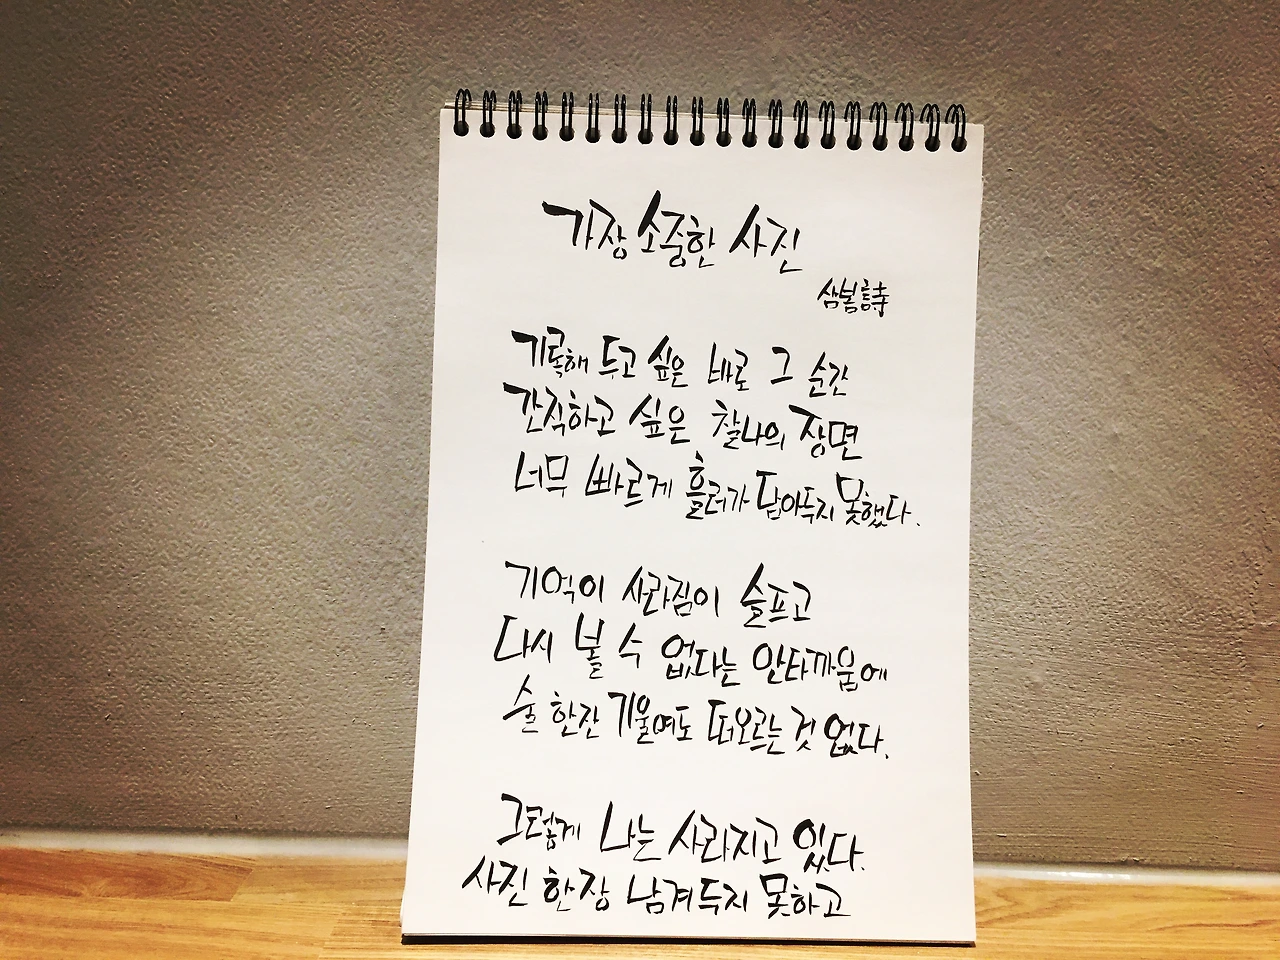 가장 소중한 사진
삼봄詩
기록해 두고 싶은 바로 그 순간
간직하고 싶은 찰나의 장면
너무 빠르게 흘러가 담아두지 못했다.
기억이 사라짐이 슬프고
다시 볼 수 없다는 안타까움에
술 한잔 기울여도 떠오르는 것 없다.
그렇게 나는 사라지고 있다.
사진 한장 남겨두지 못하고